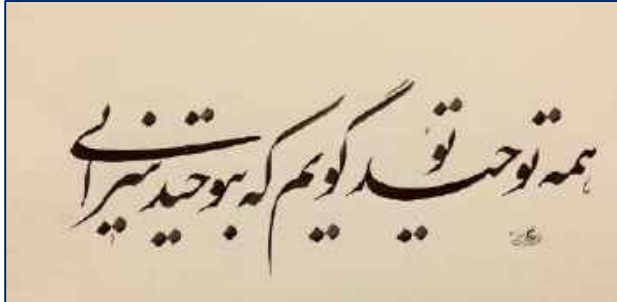 همه توحید تو گویم که بتوحید سزائی